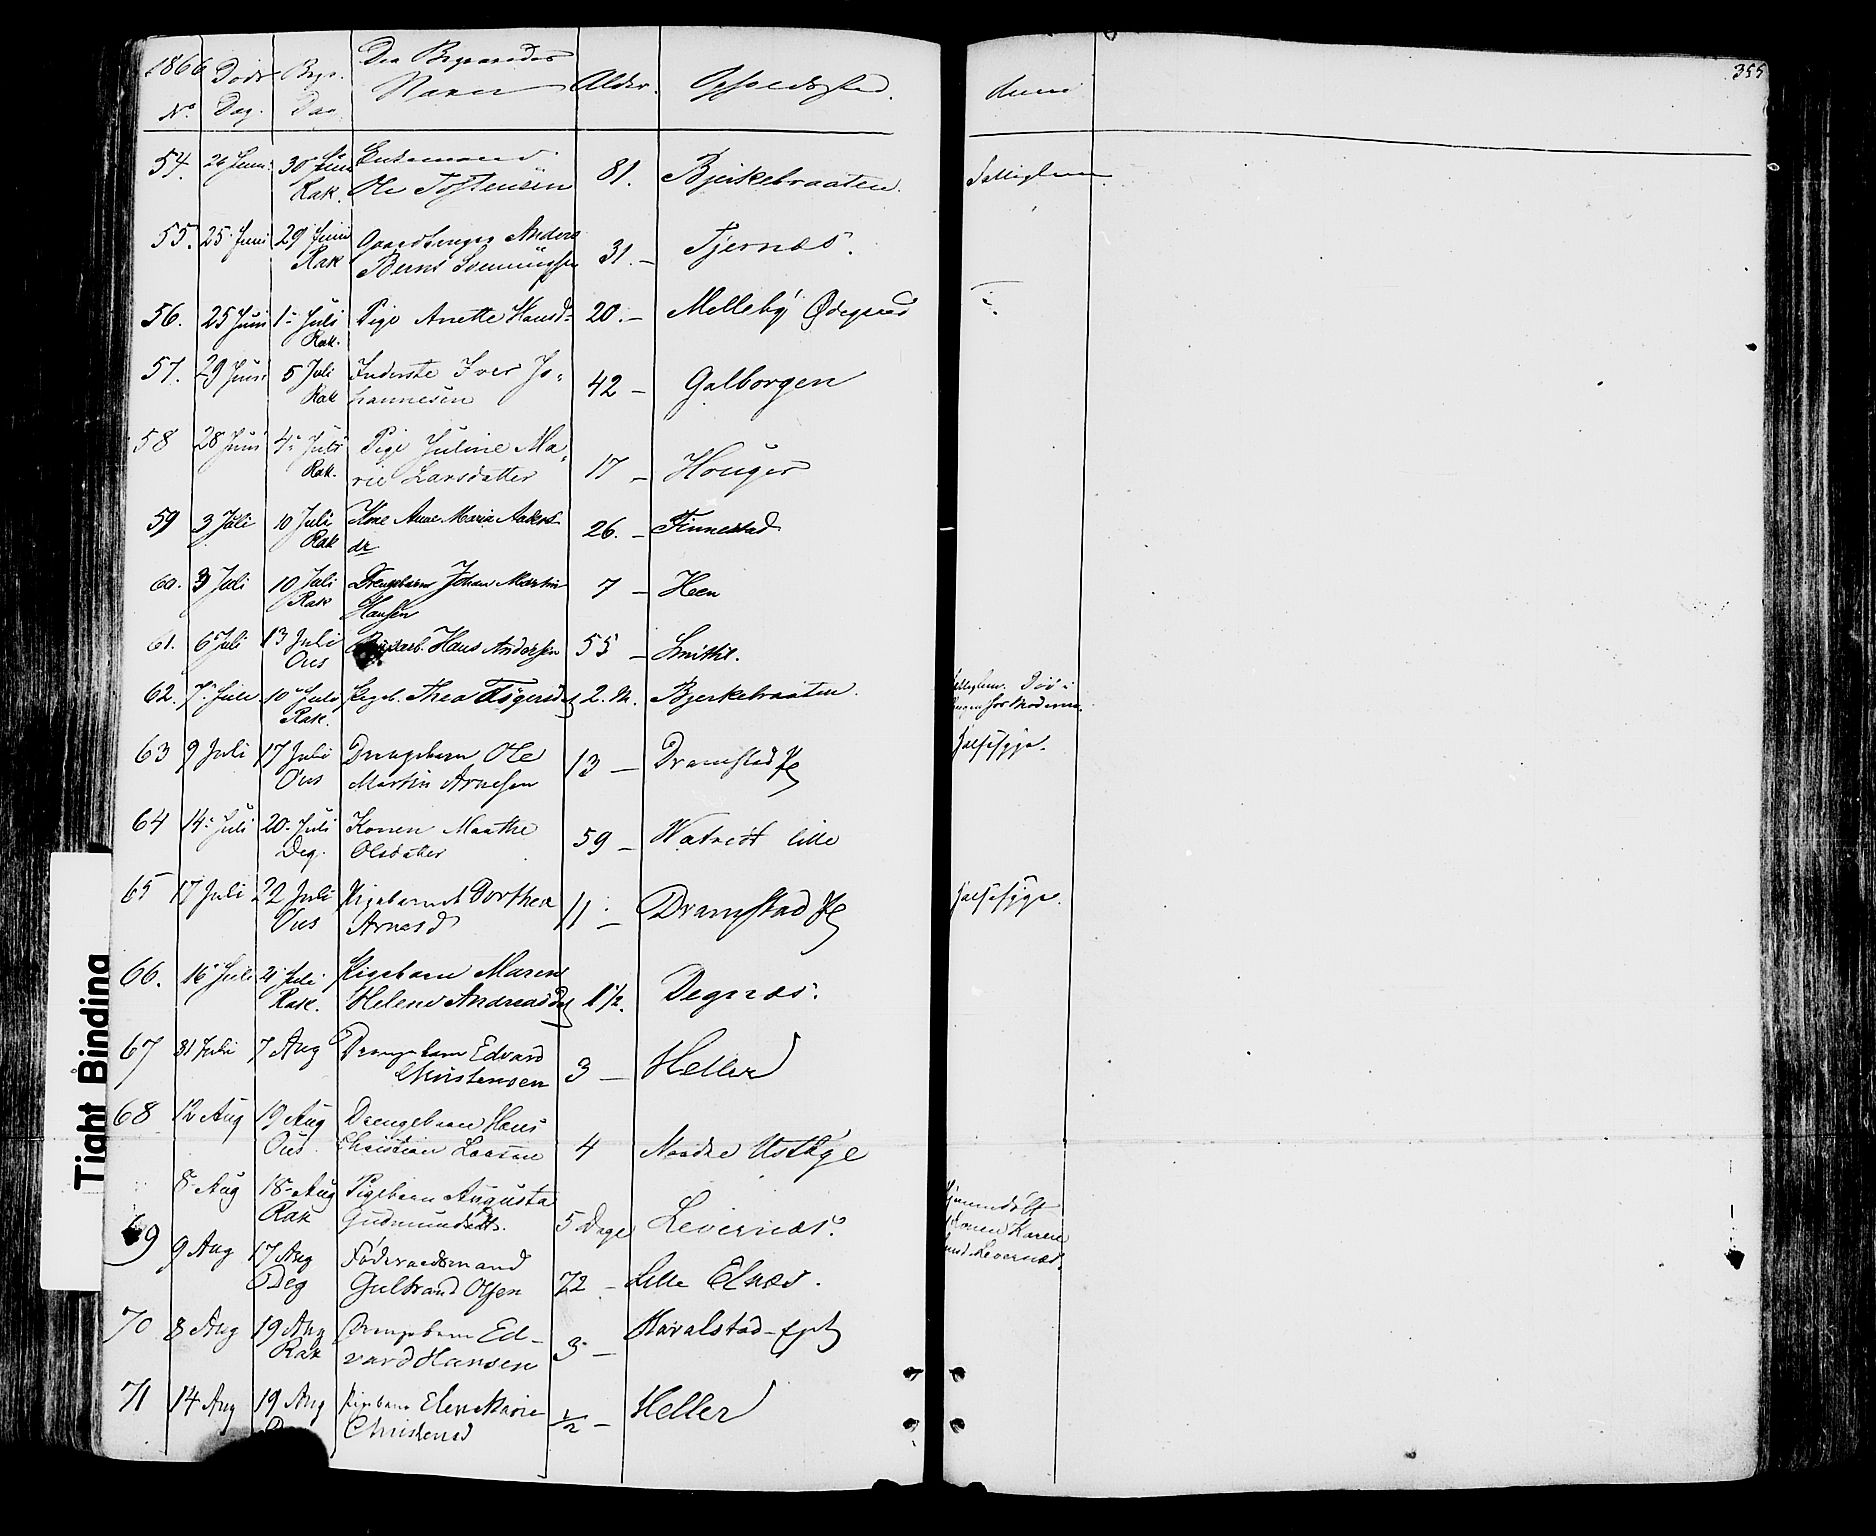 1866 Døds Begr. De Begravedes
No. Dag. Dag. Navne Alder. Opholdssted. Anm
355
54. 24 Juni 30 Juni
Rak. Ole Tostensen 81. Bjerkebraaten. Fattiglem
55. 25 Juni 29 Juni Anders
Rak Bernt Svenningsen 31.– Tjernæs.
56. 25 Juni 1– Juli Pige Anette Hansd– 20.– Melleby Ødegaard
Rak.
57. 29 Juni 5 Juli Inderste Iver Jo-
Rak hannesen 42 – Galborgen
58 28 Juni 4– Juli Pige Juline Ma-
Rak. rie Larsdatter 17 – Houger
59 3 Juli 10 Juli Kone Anne Maria Anders
Rak dr 26. – Finnestad
60. 3 Juli 10 Juli Drengebarn Johan Martin 7 – Heen
Rak Hansen
61. 6 Juli 13 Juli Hans Andersen 55 –
Ous
62. 7– Juli 10 Juli Pigeb. Thea 2. M. Bjerkebraaten. Død i
Rak.
63 9 Juli 17 Juli Drengebarn Ole 13 – Dramstad Halssyge.
Ous Martin Arnesen
64 14– Juli 20– Juli Konen Marthe
Deg. Olsdatter 59 – lille
65 17 Juli 22 Juli Pigebarnet Dorthea 11 – Dramstad Halssyge.
Ous Arnesd
66. 16– Juli 21 Juli Pigebarn Maren
Rak. Helene Andreasd 1 1/2. Degnæs.
67 31 Juli 7 Aug Drengebarn Edvard
Christensen 3 – Heller
68 12 Aug 19 Aug Drengebarn Hans
Ous Christian Larsen 4 Nordre
8– Aug 18– Aug Pigebarn Augusta
Rak Gudmundsdtr. 5 Dage Levernæs.
Konen Karen
Levernæs.
69 9 Aug 17 Aug Føderaadsmand
Deg Gulbrand Olsen 72 – Lille Elnæs.
70 8 Aug 19 Aug Drengebarn Ed-
Rak vard Hansen 3 – Haralstad
71 14 Aug 19 Aug Pigebarn Elen Marie 1/2 – Heller
Christensd
Tight Binding